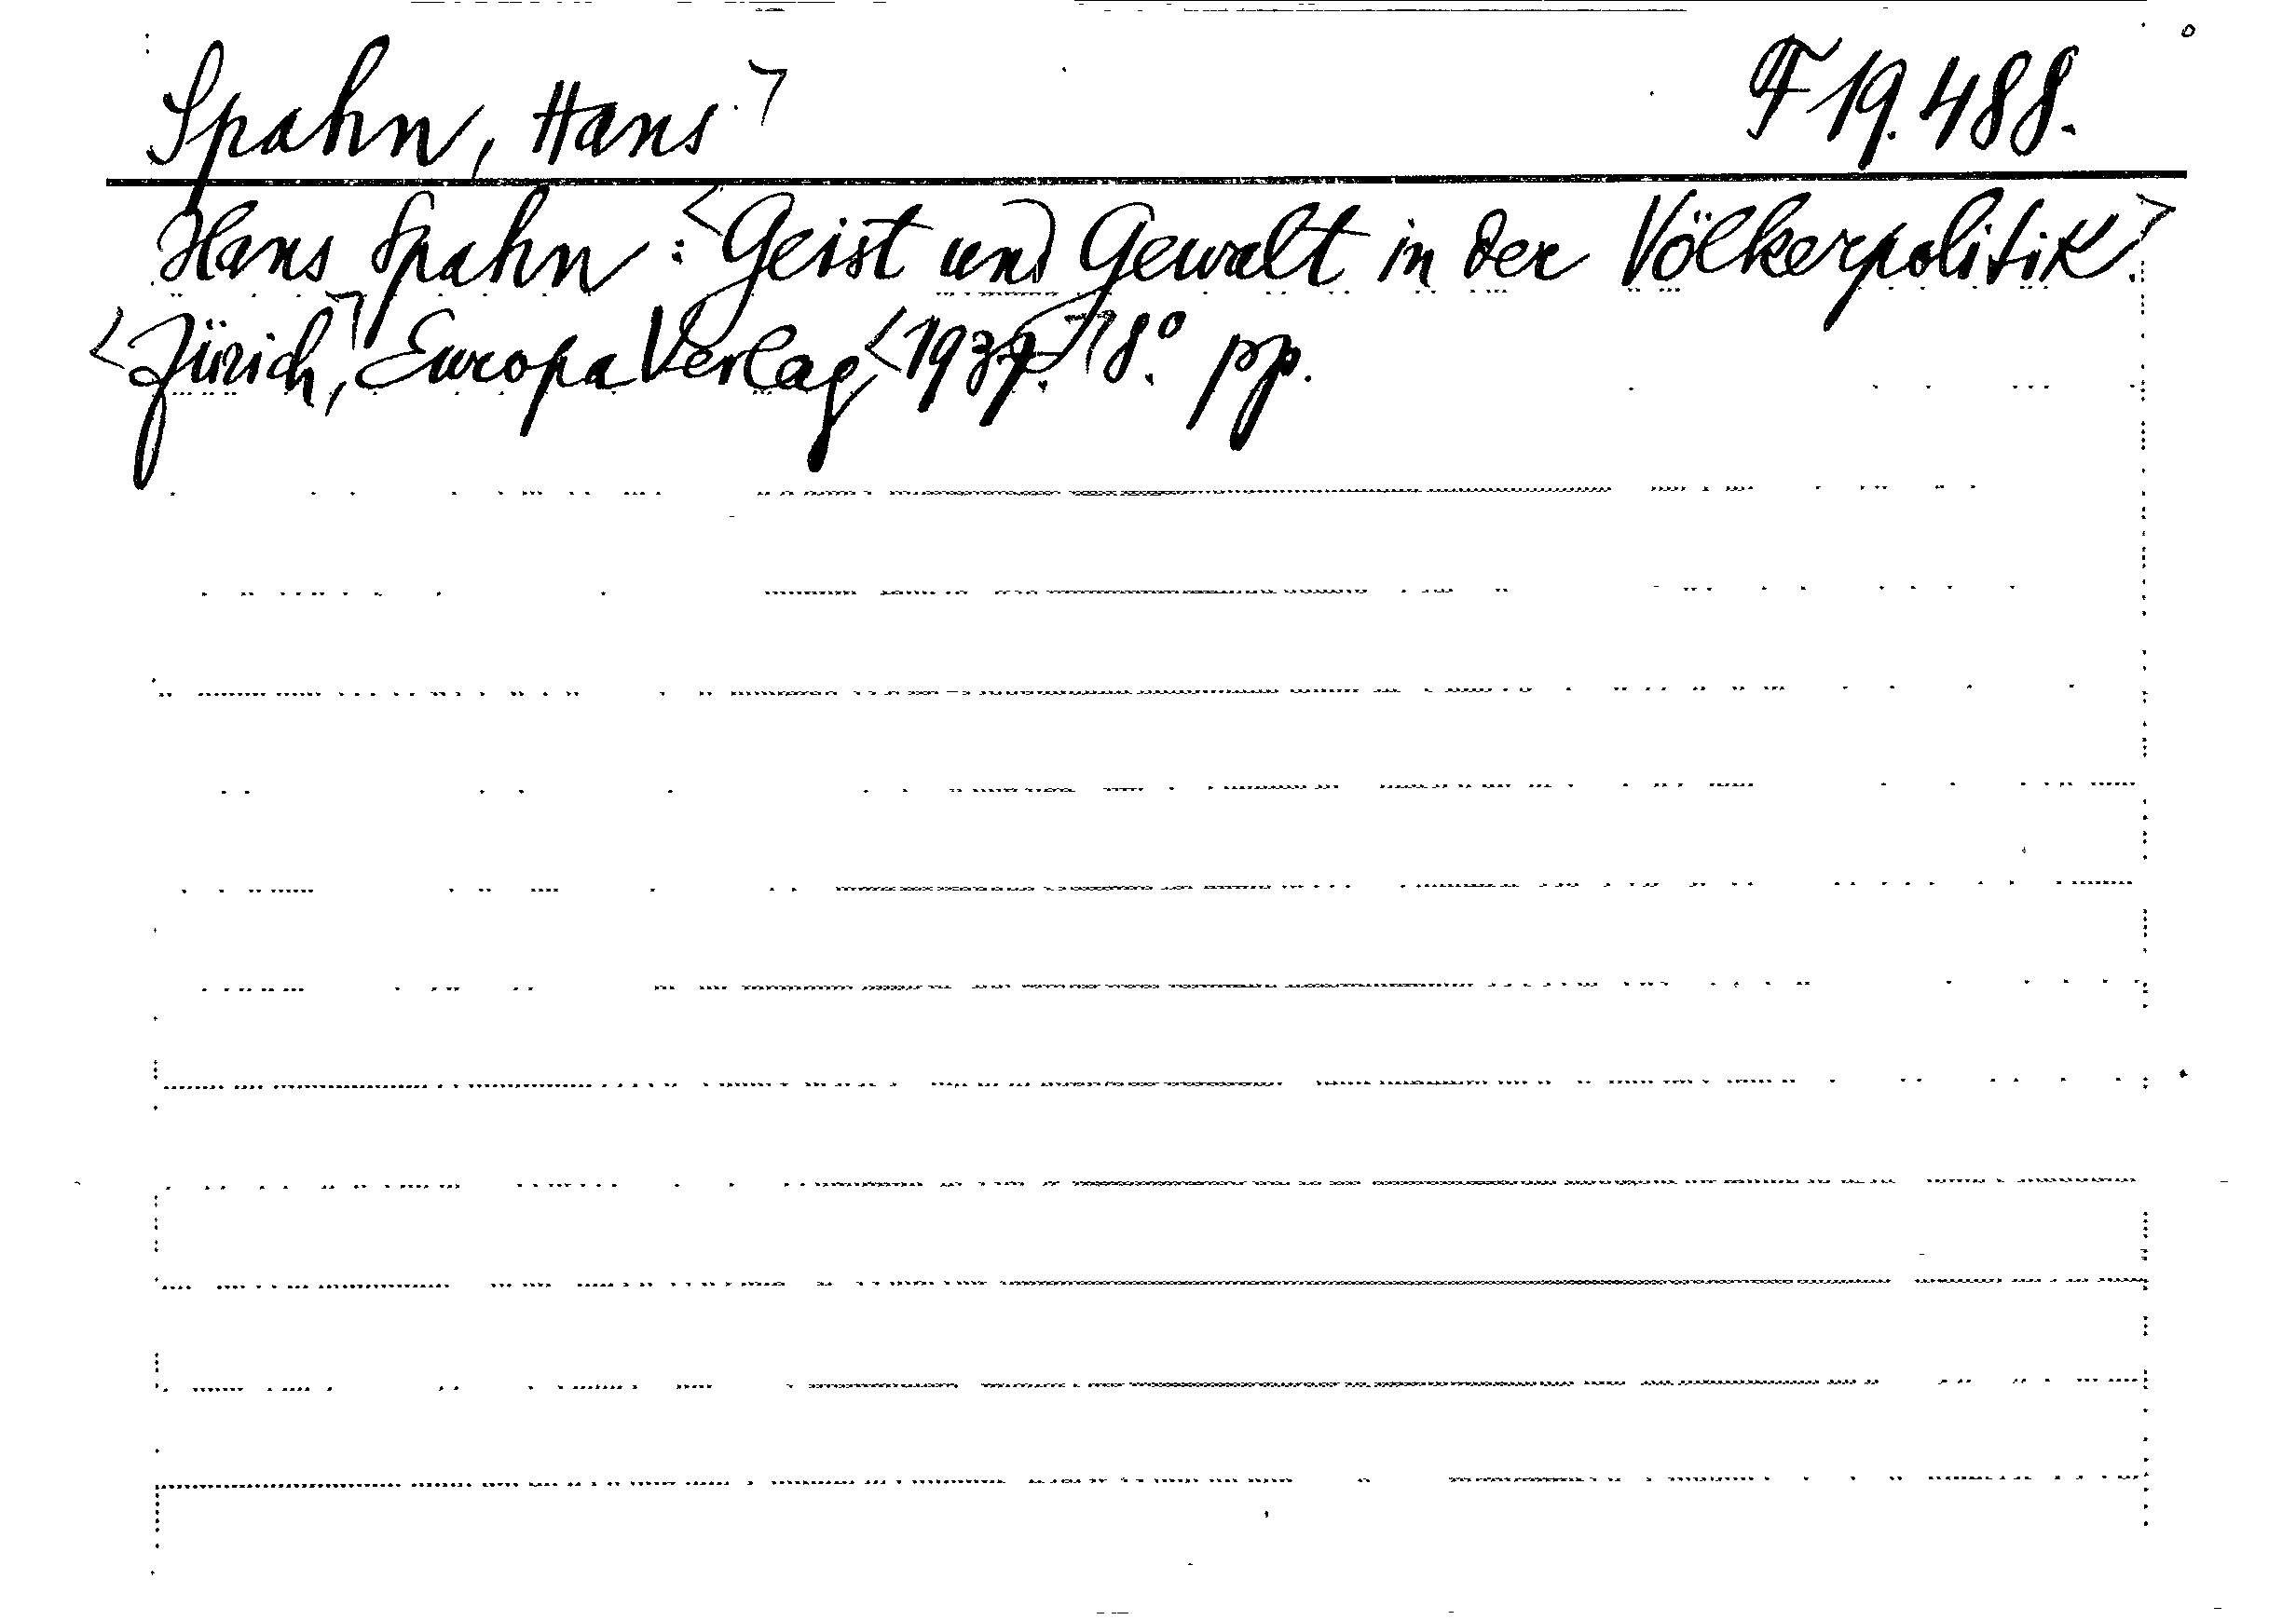 Spahn, Hans F 19.488.
Hans Spahn: Geist und Gewalt in der Völkerpolitik.
Zürich, Europa Verlag, 8° pp.